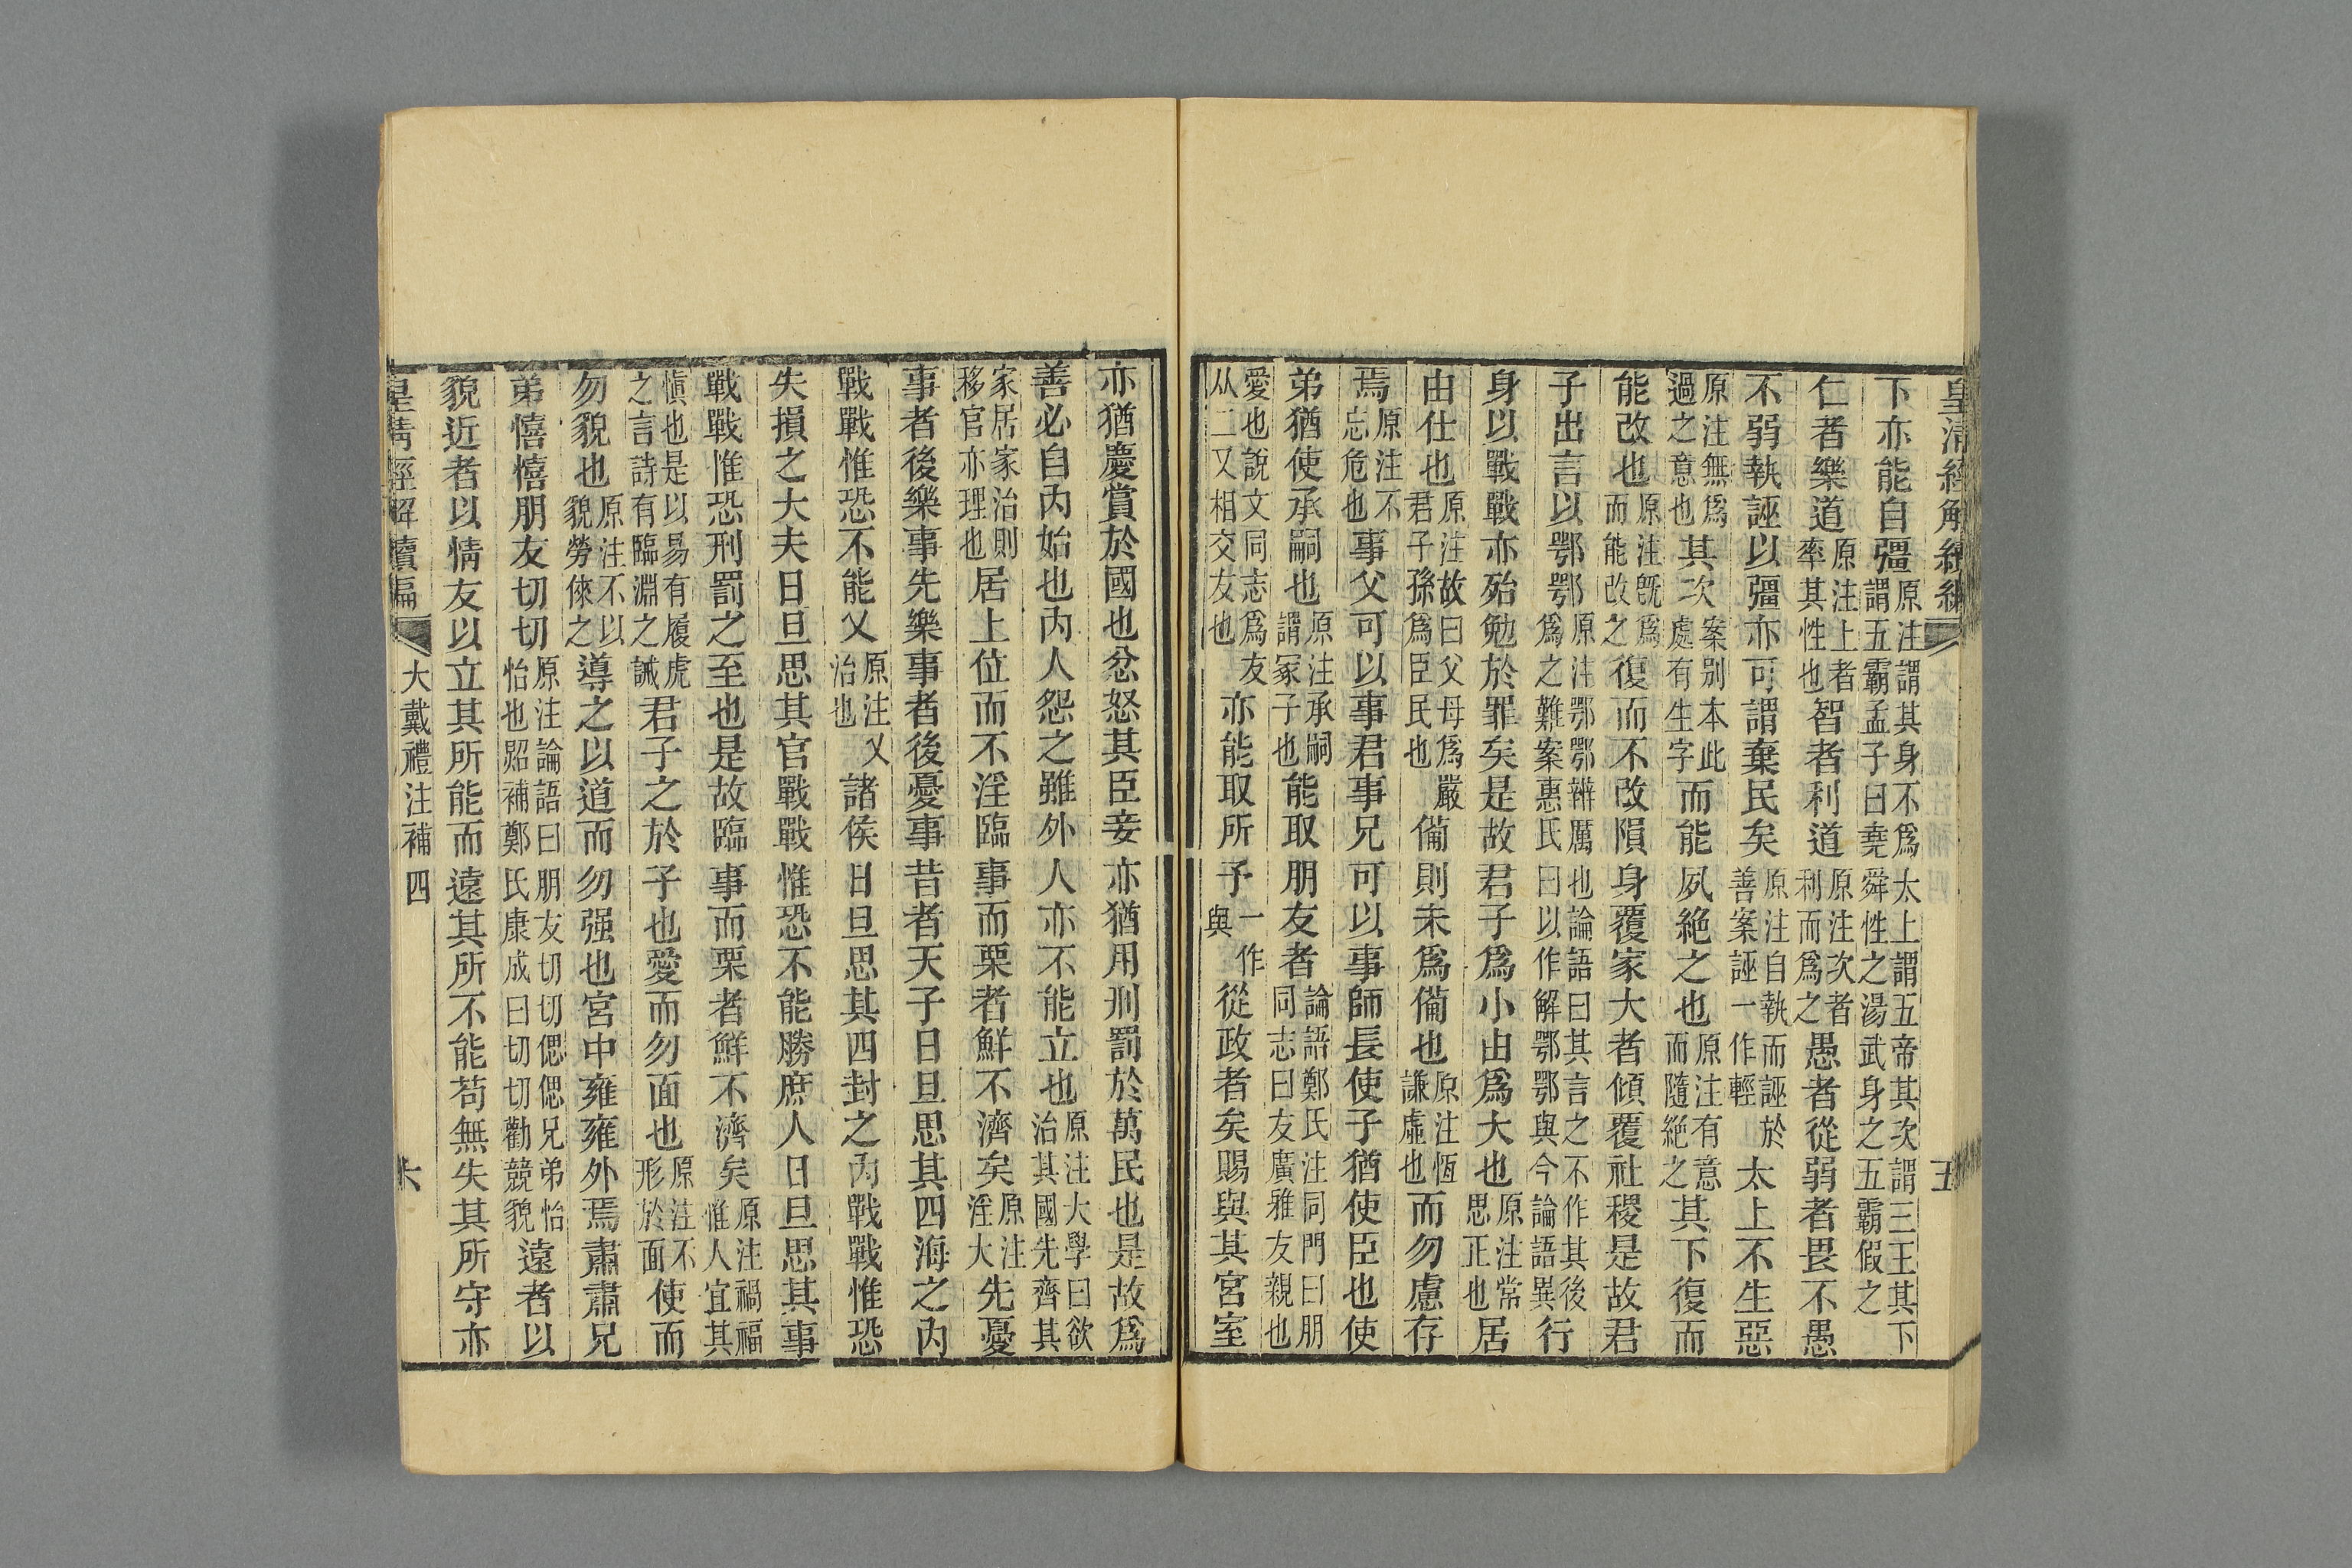 皇清經解續編 五
下亦能自彊原注謂其身不爲太上謂五帝其次謂三王其下謂五霸孟子曰堯舜性之湯武身之五霸假之
仁者樂道原注上者率其性也智者利道原注次者利而爲之愚者從弱者畏不愚
不弱執誣以彊亦可謂棄民矣原注自執而誣於善案誣一作輕太上不生惡
原注無爲過之意也其次案別本此處有生字而能夙絕之也原注有意而隨絕之其下復而
能改也原注旣爲而能改之復而不改隕身覆家大者傾覆社稷是故君
子出言以鄂鄂原注鄂鄂辨厲也論語曰其言之不作其後爲之難案惠氏曰以作解鄂鄂與今論語異行
身以戰戰亦殆勉於罪矣是故君子爲小由爲大也原注常思正也居
由仕也原注故曰父母爲嚴君子孫爲臣民也備則未爲備也原注恆謙虛也而勿慮存
焉原注不忘危也事父可以事君事兄可以事師長使子猶使臣也使
弟猶使承嗣也原注承嗣謂冢子也能取朋友者論語鄭氏注同門曰朋同志曰友廣雅友親也
愛也說文同志爲友从二又相交友也亦能取所予一作與從政者矣賜與其宮室
亦猶慶賞於國也忿怒其臣妾亦猶用刑罰於萬民也是故爲
善必自內始也內人怨之雖外人亦不能立也原注大學曰欲治其國先齊其
家居家治則移官亦理也居上位而不淫臨事而栗者鮮不濟矣原注淫大先憂
事者後樂事先樂事者後憂事昔者天子日旦思其四海之內
戰戰惟恐不能乂原注乂治也諸侯日旦思其四封之內戰戰惟恐
失損之大夫日旦思其官戰戰惟恐不能勝庶人日旦思其事
戰戰惟恐刑罰之至也是故臨事而栗者鮮不濟矣原注禍福惟人宜其
愼也是以易有履虎之言詩有臨淵之誡君子之於子也愛而勿面也原注不形於面使而
勿貌也原注不以貌勞倈之導之以道而勿强也宮中雍雍外焉肅肅兄
弟憘憘朋友切切原注論語曰朋友切切偲偲兄弟怡怡也貂補鄭氏康成曰切切勸競貌遠者以
貌近者以情友以立其所能而遠其所不能苟無失其所守亦
皇清經解續編 大戴禮注補四 六